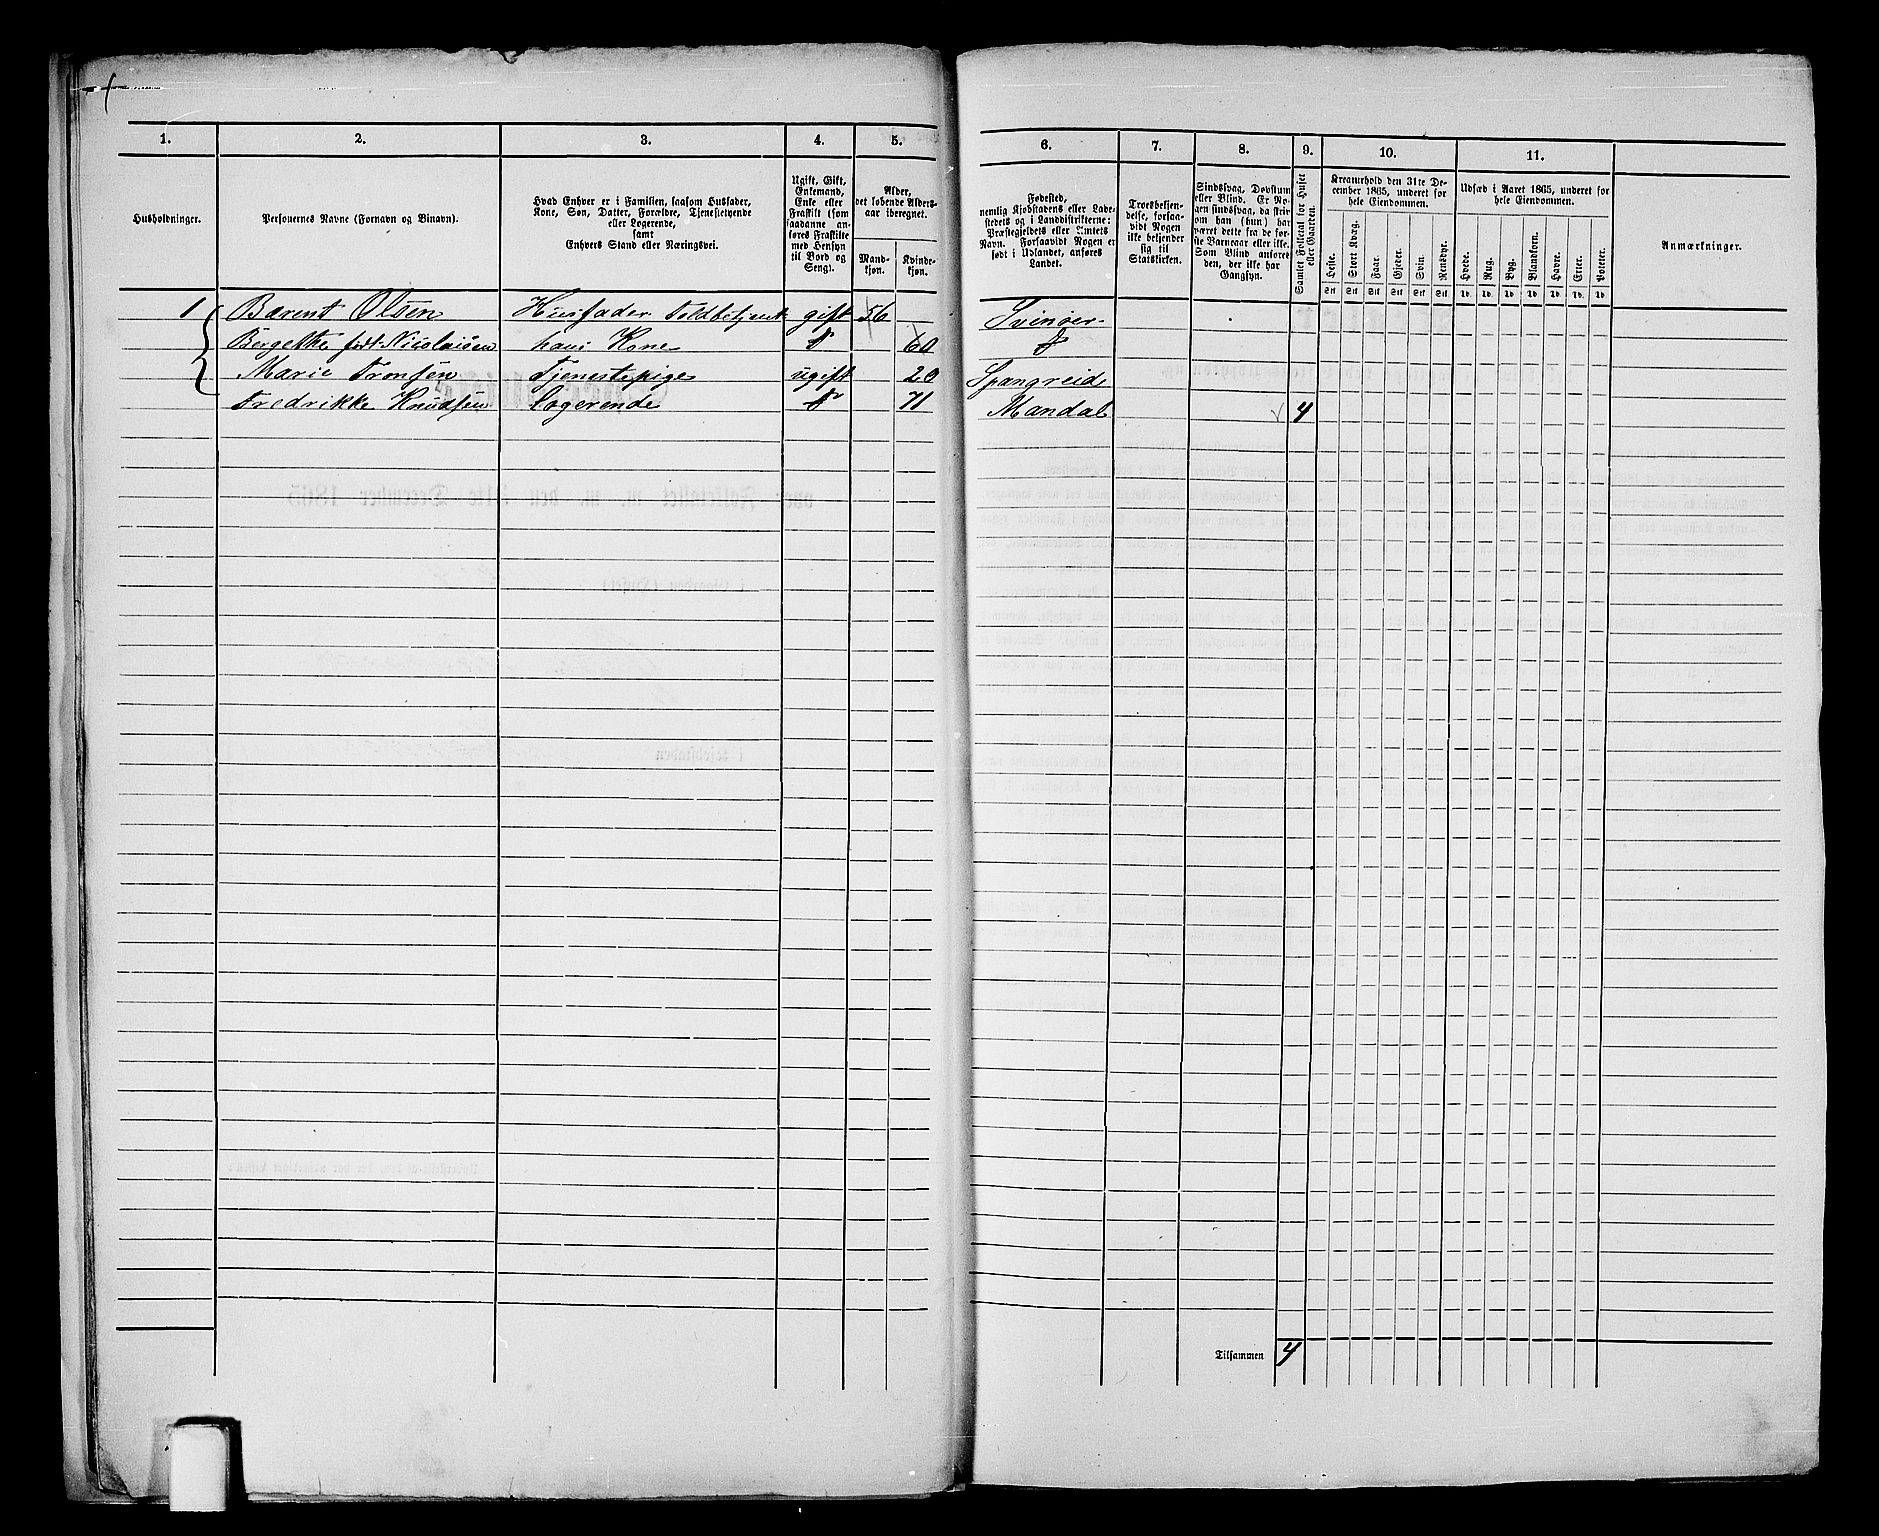 1. 2. 3. 4. 5. 6. 7. 8. 9. 10. 11.
Husholdninger.
Personernes Navne (Fornavn og Binavn).
Hvad Enhver er i Familien, saasom Husfader,
Kone, Søn, Datter, Forældre, Tjenestetyende
eller Logerende,
samt
Enhvers Stand eller Næringsvei.
Ugift, Gift,
Enkemand,
Enke eller
Fraskilt (som
saadanne an-
føres Fraskilte
med Hensyn
til Bord og
Seng).
Alder,
det løbende Alders-
aar iberegnet.
Mand-
kjøn.
Kvinde-
kjøn.
Fødested,
nemlig Kjøbstadens eller Lade-
stedets og i Landdistrikterne:
Præstegjeldets eller Amtets
Navn. Forsaavidt Nogen er
født i Udlandet, anføres
Landet.
Troesbekjen-
delse, forsaa-
vidt Nogen
ikke bekjender
sig til
Statskirken.
Sindssvag, Døvstum
eller Blind. Er No-
gen sindssvag, da skriv
om han (hun) har
været dette fra de før-
ste Barneaar eller ikke.
Som Blind anføres
den, der ikke har
Gangsyn.
Samlet Folketal for Huset
eller Gaarden.
Kreaturhold den 31te De-
cember 1865, underet for
hele Eiendommen.
Heste. Stort Kvæg. Faar. Gjeder. Svin. Rensdyr.
Stk Stk Stk Stk Stk Stk
Udsæd i Aaret 1865, underet for
hele Eiendommen.
Hvede. Rug. Byg. Blandkorn. Havre. Erter. Poteter.
Td. Td. Td. Td. Td. Td. Td.
Anmærkninger.
1 Barent Olsen Husfader Toldbetjent gift 56 Svinøer
Bergette født Nicolaisen hans Kone D 60 D
Marie Tronsen Tjenestepige ugift 20 Spangreid
Fredrikke Knudsen Logerende D 71 Mandal 4
Tilsammen 4